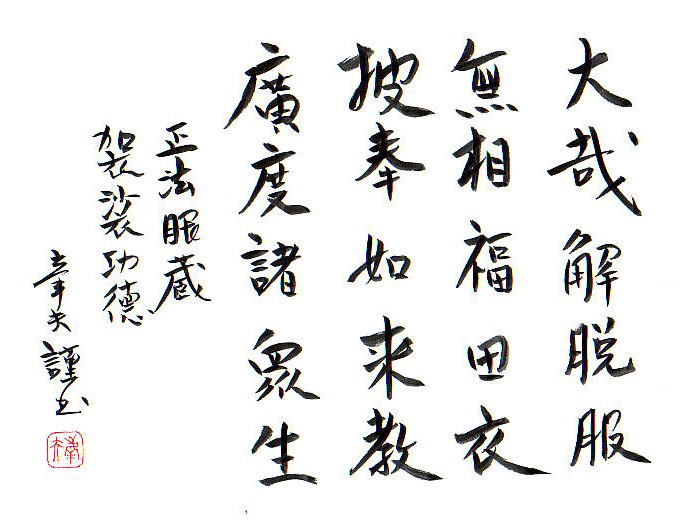 大哉解脱服
無相福田衣
披奉如来教
廣度諸衆生
正法眼蔵
袈裟功徳
幸夫謹書